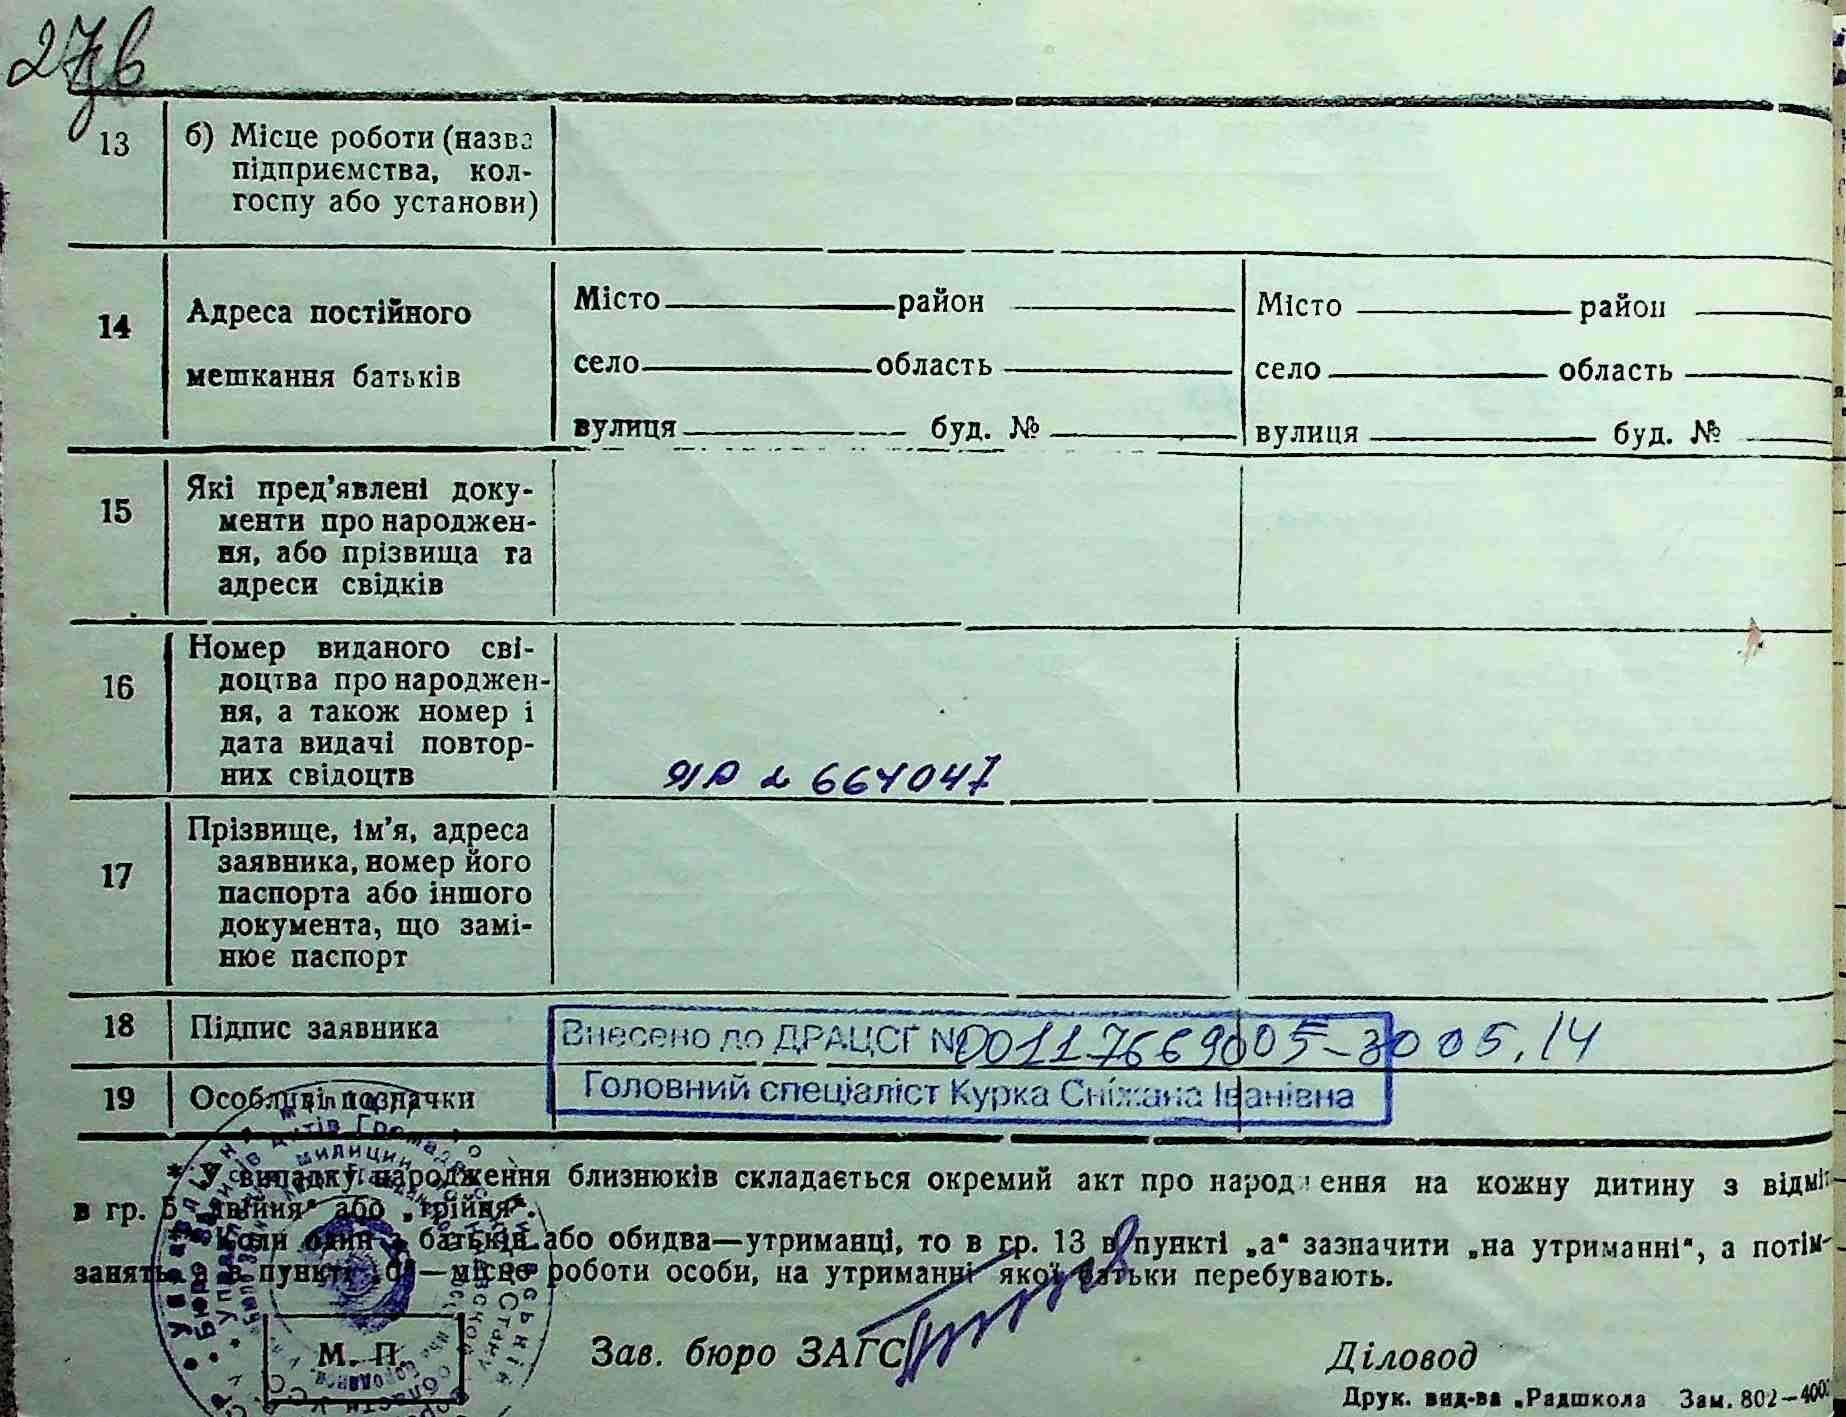 27 в
13 б) Місце роботи (назва
підприємства, кол-
госпу або установи)
14 Адреса постійного
мешкання батьків
Місто район
село область
вулиця буд. №
Місто район
село область
вулиця буд. №
15 Які пред’явлені доку-
менти про народжен-
ня, або прізвища та
адреси свідків
16 Номер виданого сві-
доцтва про народжен-
ня, а також номер і
дата видачі повтор-
них свідоцтв
664047
17 Прізвище, ім’я, адреса
заявника, номер його
паспорта або іншого
документа, що замі-
нює паспорт
18 Підпис заявника
Внесено до ДРАЦСГ № 00117669005-30 05.14
Головний спеціаліст Курка Сніжана Іванівна
19 Особливі позначки
* У випадку народження близнюків складається окремий акт про народження на кожну дитину з відміт-
в гр. 5 „двійня“ або „трійня“.
Коли один з батьків або обидва—утриманці, то в гр. 13 в пункті „а“ зазначити „на утриманні“, а потім—
заняття, а в пункті „б“—місце роботи особи, на утриманні якої батьки перебувають.
М. П.
Зав. бюро ЗАГС
Діловод
Друк. вид-ва „Радшкола Зам. 802—4000